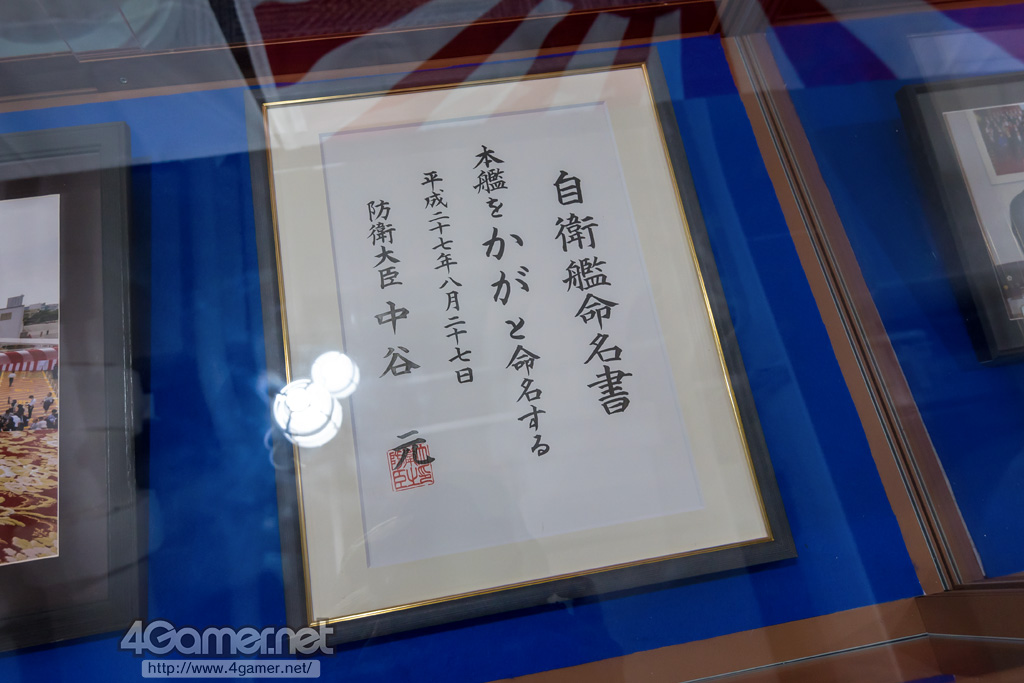 自衛艦命名書
本艦をかがと命名する
平成二十七年八月二十七日
防衛大臣 中谷 元
4Gamer.net
http://www.4gamer.net/